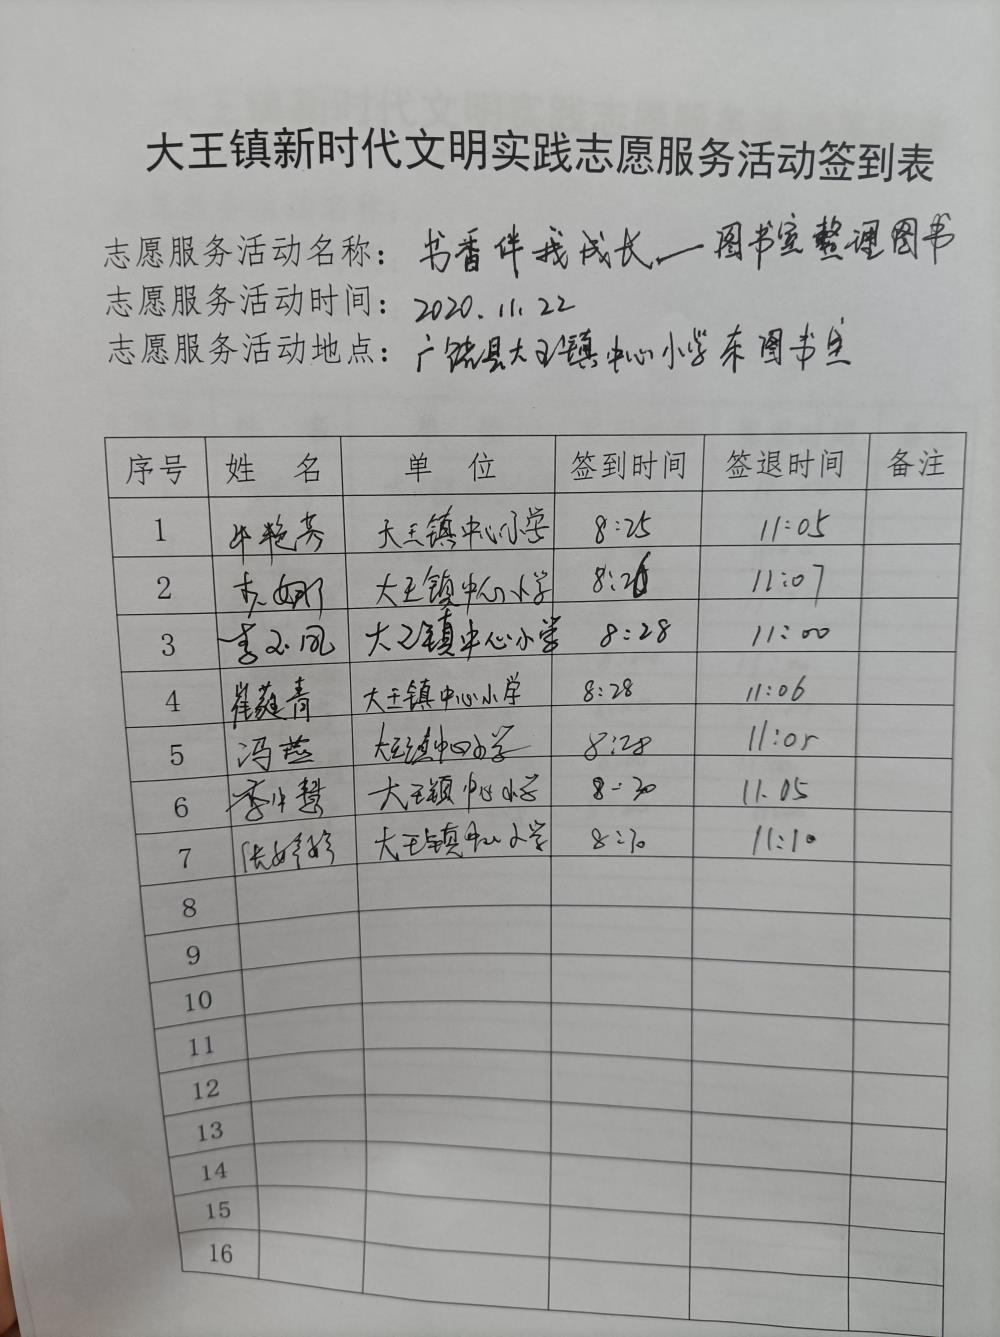 大王镇新时代文明实践志愿服务活动签到表
志愿服务活动名称：书香伴我成长—图书室整理图书
志愿服务活动时间：2020.11.22
志愿服务活动地点：广饶县大王镇中心小学东图书室
序号 姓名 单位 签到时间 签退时间 备注
1 牛艳芳 大王镇中心小学 8:25 11:05
2 大王镇中心小学 8:26 11:07
3 李玉凤 大王镇中心小学 8:28 11:00
4 崔蕤青 大王镇中心小学 8:28 11:06
5 冯燕 大王镇中心小学 8:28 11:05
6 李中慧 大王镇中心小学 8:30 11:05
7 张婷婷 大王镇中心小学 8:30 11:10
8
9
10
11
12
13
14
15
16